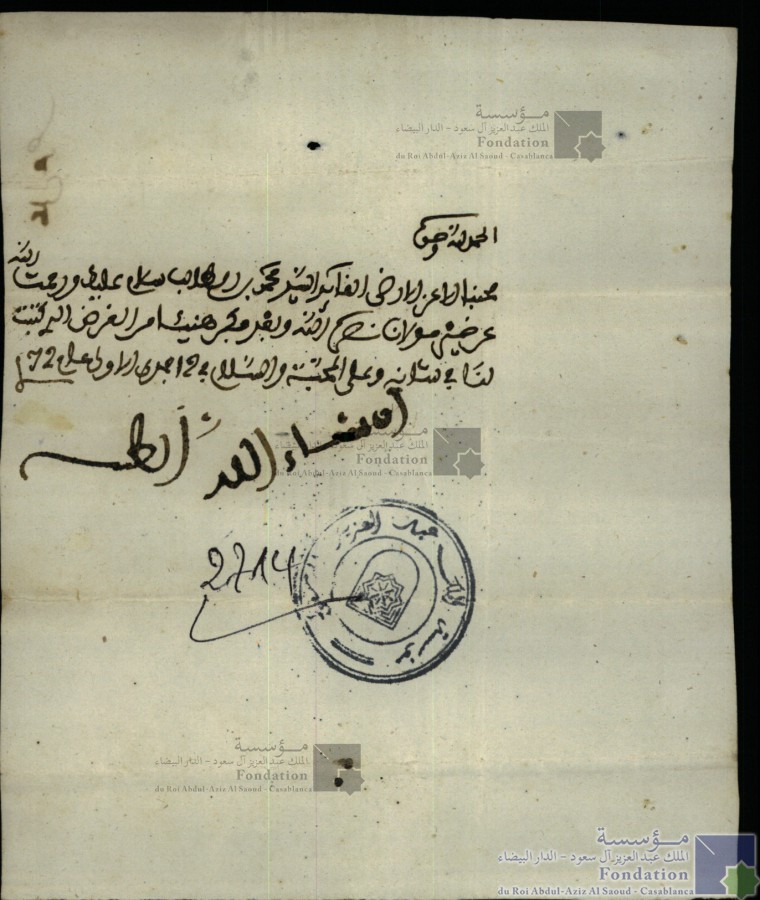 مؤسسة
الملك عبد العزيز آل سعود - الدار البيضاء
Fondation
du Roi Abdul-Aziz Al Saoud - Casablanca
الحمد لله وحده
محبنا الاعز الارضى القائد السيد محمد بن سلام عليك ورحمت الله
عن خير مولانا نصره الله وبعد امر الغرض الذي كتبت
لنا في شانه وعلى المحبة والسلام في 12 جمدى الاولى عام 72
ان شاء الله
مؤسسة
الملك عبد العزيز آل سعود - الدار البيضاء
Fondation
du Roi Abdul-Aziz Al Saoud - Casablanca
مؤسسة الملك عبد العزيز
2714
مؤسسة
الملك عبد العزيز آل سعود - الدار البيضاء
Fondation
du Roi Abdul-Aziz Al Saoud - Casablanca
مؤسسة
الملك عبد العزيز آل سعود - الدار البيضاء
Fondation
du Roi Abdul-Aziz Al Saoud - Casablanca